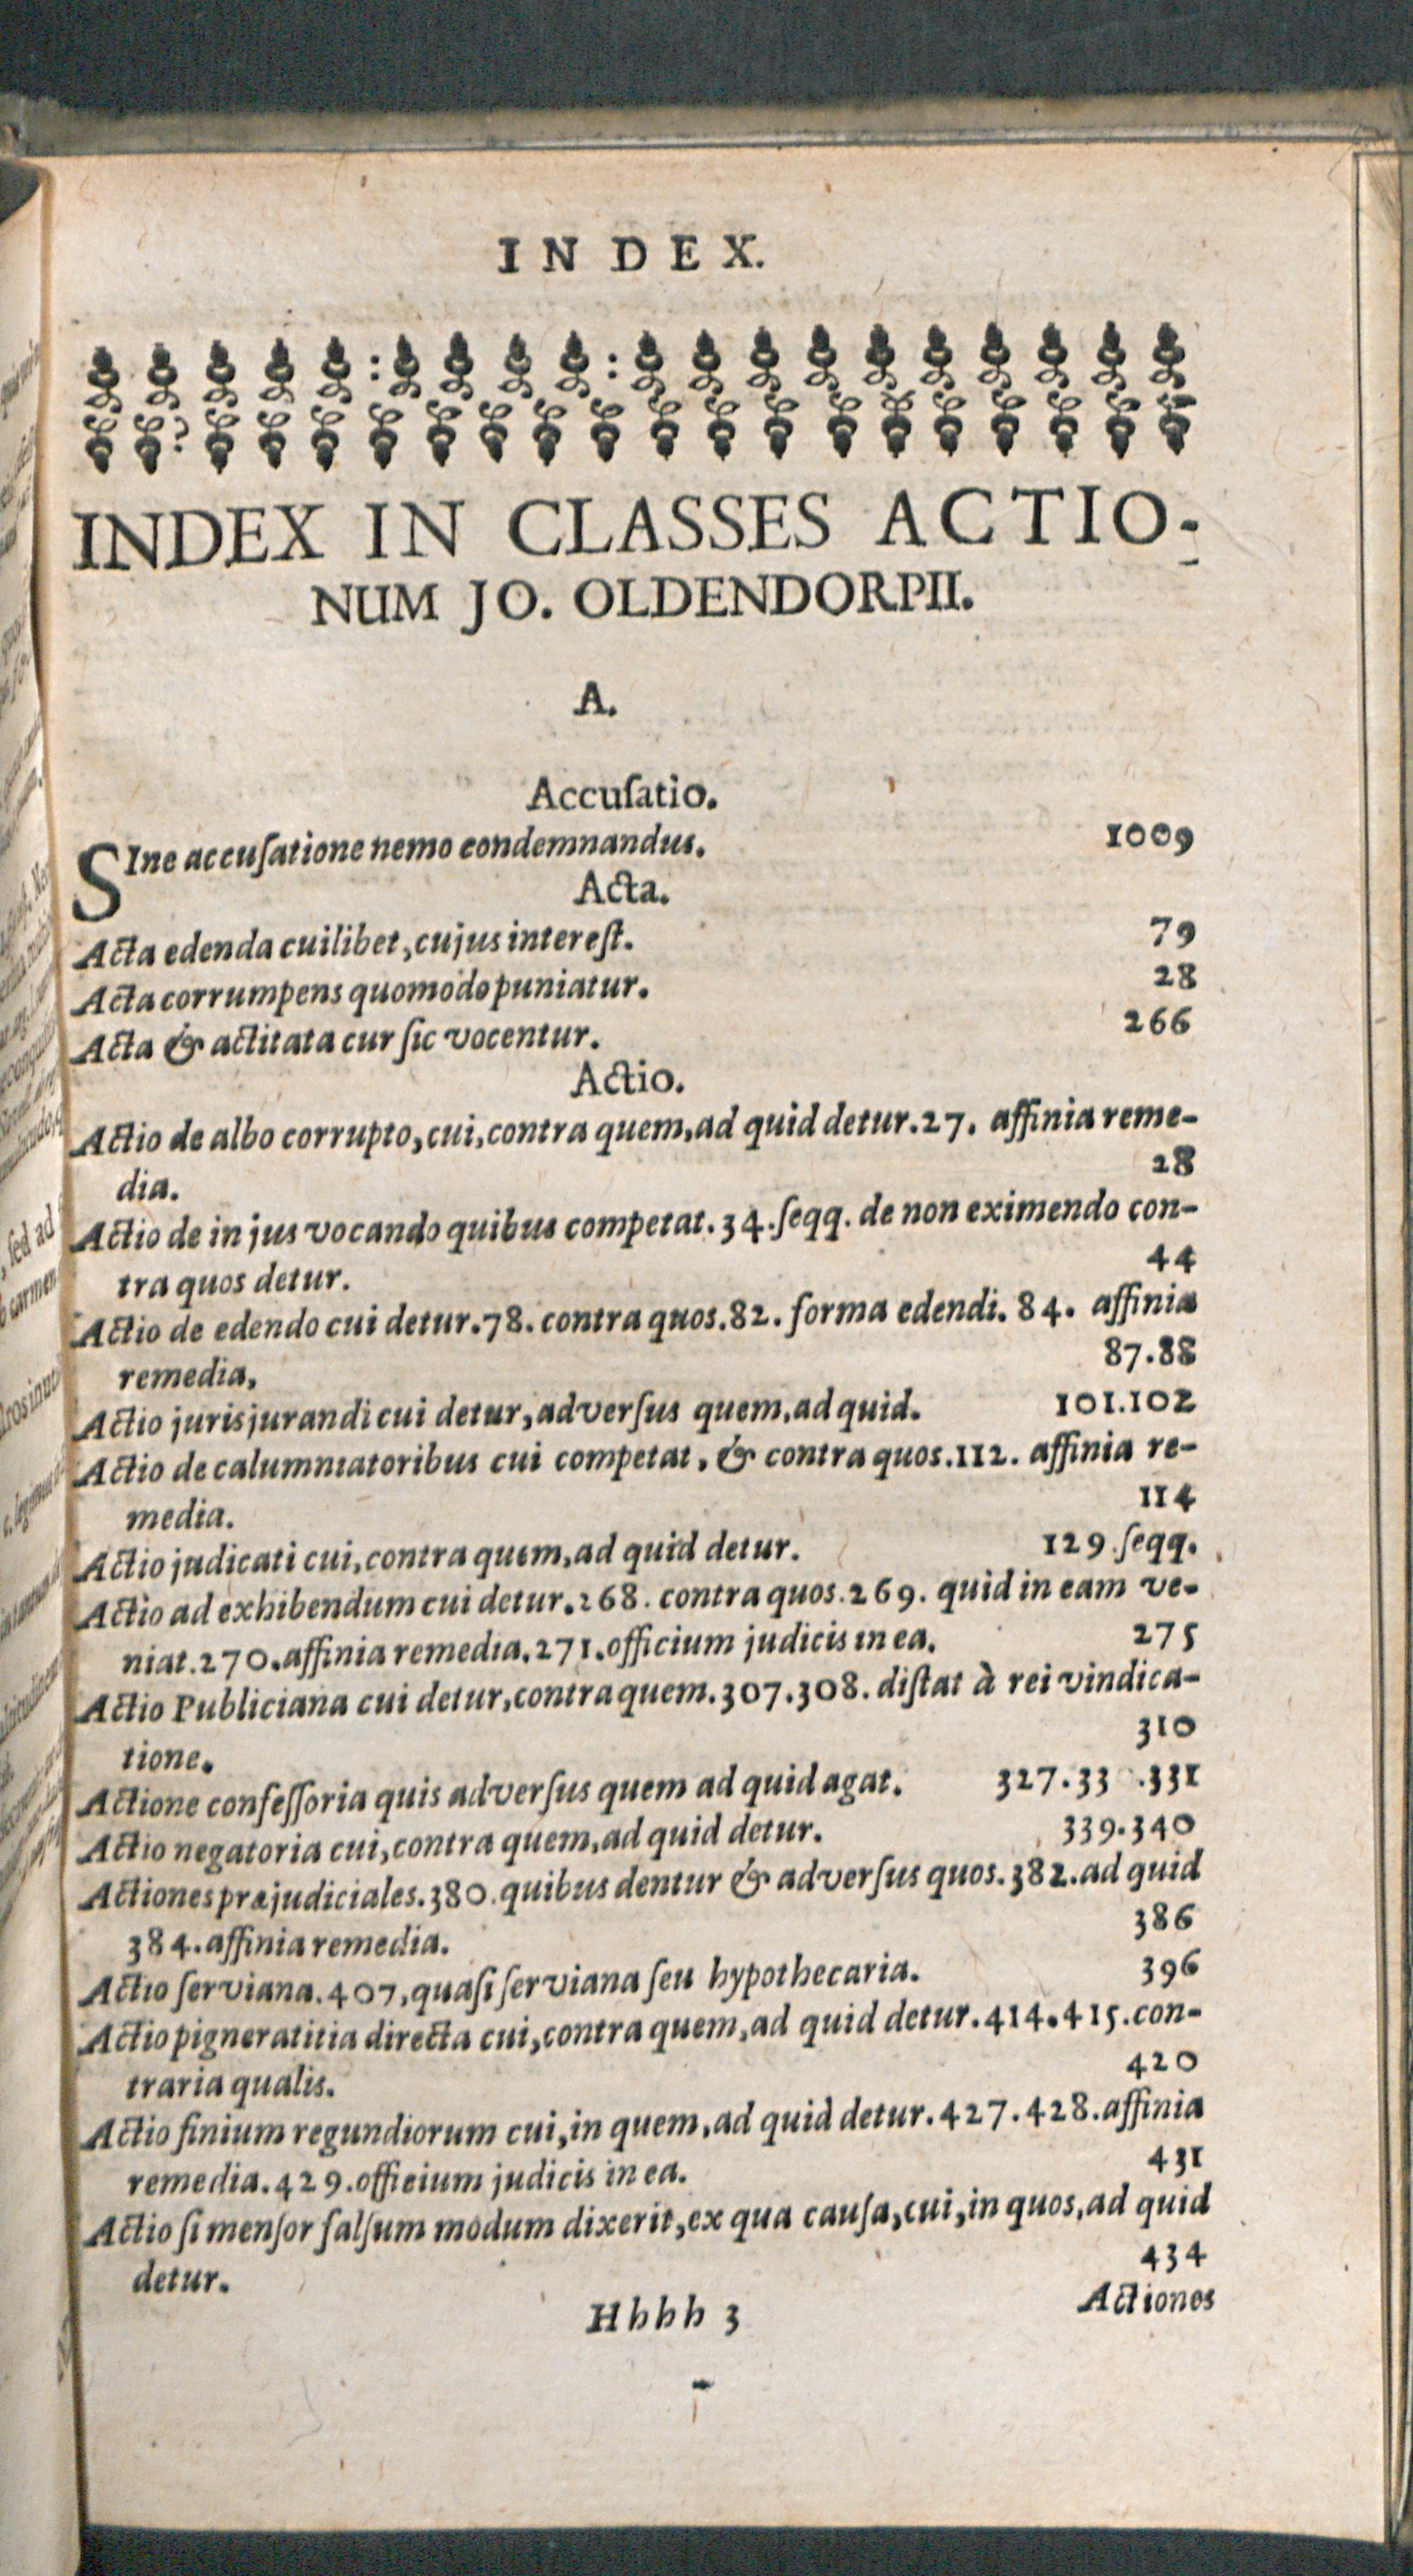 INDEX.
INDEX IN CLASSES ACTIO-
NUM JO. OLDENDORPII.
A.
Accuſatio.
SIne accuſatione nemo condemnandus. 1009
Acta.
Acta edenda cuilibet, cujus intereſt. 79
Acta corrumpens quomodo puniatur. 28
Acta & actitata cur ſic vocentur. 266
Actio.
Actio de albo corrupto, cui, contra quem, ad quid detur. 27. affinia reme-
dia. 28
Actio de in jus vocando quibus competat. 34. ſeqq. de non eximendo con-
tra quos detur. 44
Actio de edendo cui detur. 78. contra quos. 82. forma edendi. 84. affinia
remedia, 87.88
Actio jurisjurandi cui detur, adverſus quem, ad quid. 101.102
Actio de calumniatoribus cui competat, & contra quos. 112. affinia re-
media. 114
Actio judicati cui, contra quem, ad quid detur. 129. ſeqq.
Actio ad exhibendum cui detur. 268. contra quos. 269. quid in eam ve-
niat. 270. affinia remedia. 271. officium judicis in ea. 275
Actio Publiciana cui detur, contra quem. 307.308. diſtat à rei vindica-
tione. 310
Actione confeſſoria quis adverſus quem ad quid agat. 327.33 .331
Actio negatoria cui, contra quem, ad quid detur. 339.340
Actiones præjudiciales. 380. quibus dentur & adverſus quos. 382. ad quid
384. affinia remedia. 386
Actio ſerviana. 407, quaſi ſerviana ſeu hypothecaria. 396
Actio pigneratitia directa cui, contra quem, ad quid detur. 414.415. con-
traria qualis. 420
Actio finium regundiorum cui, in quem, ad quid detur. 427.428. affinia
remedia. 429. officium judicis in ea. 431
Actio ſi menſor falſum modum dixerit, ex qua cauſa, cui, in quos, ad quid
detur. 434
Hhhh 3 Actiones